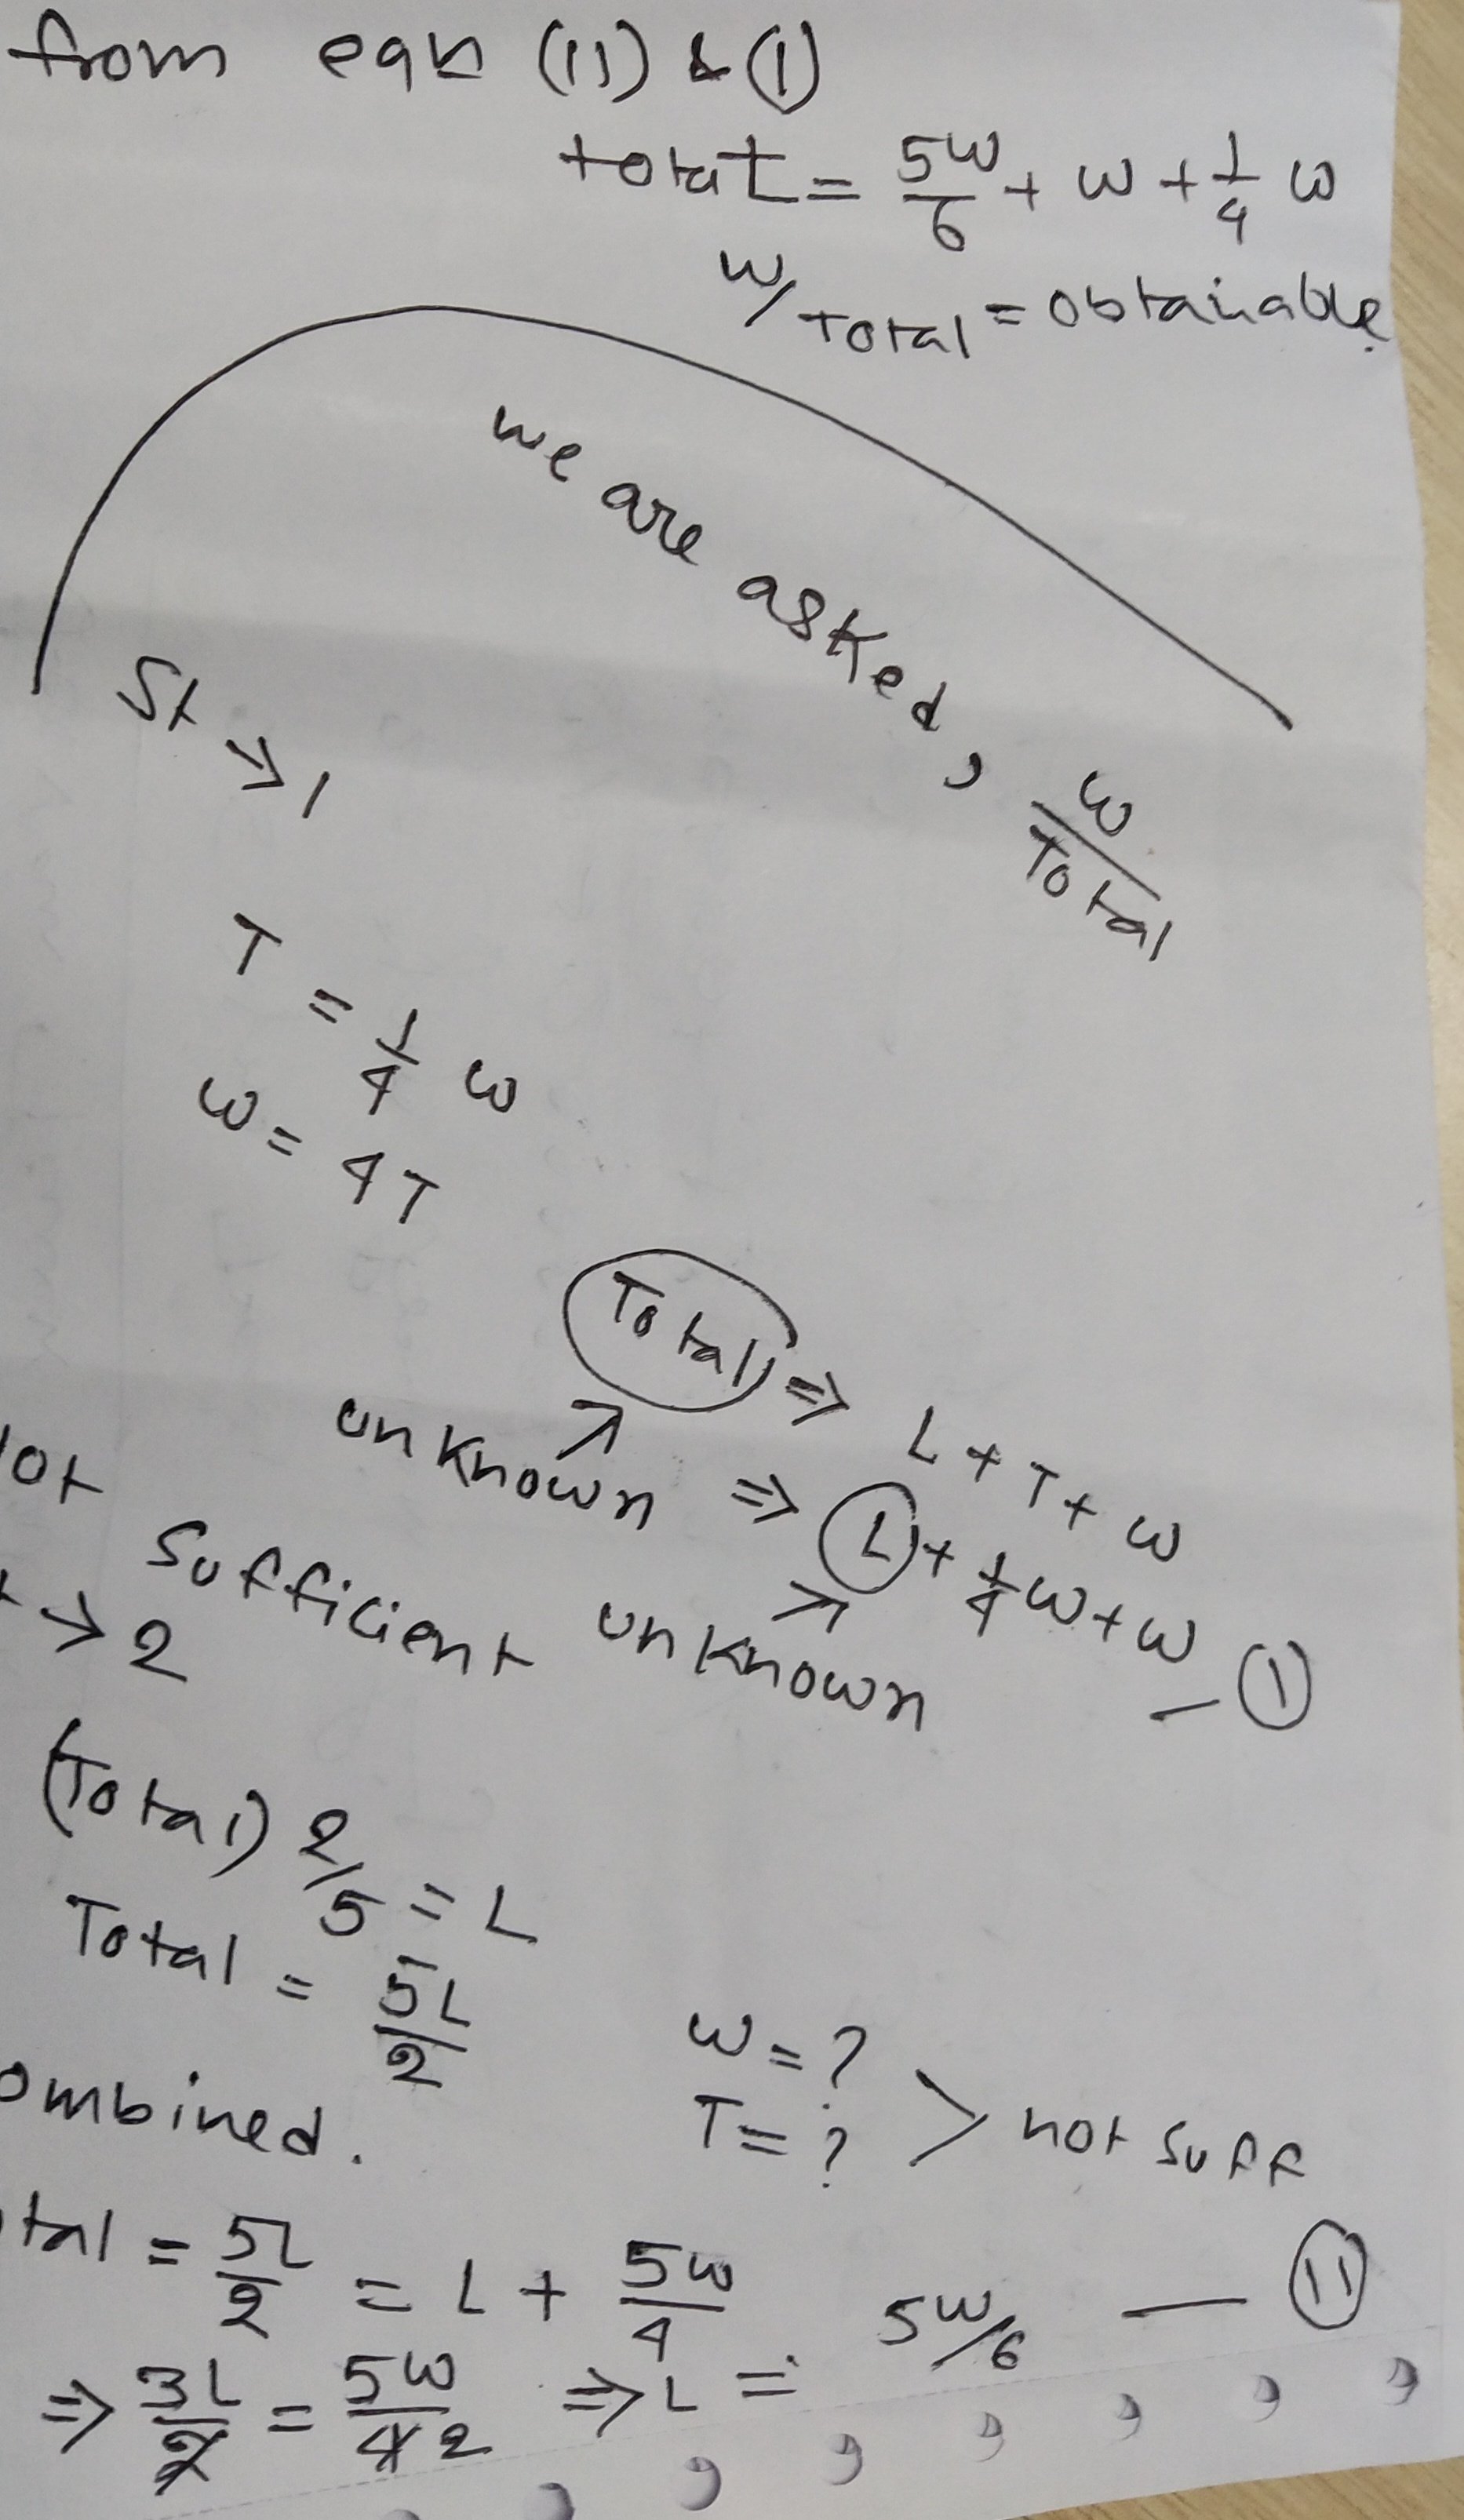 from eqn (11) & (1)
total = 5w/6 + w + 1/4 w
w/Total = obtainable.
we are asked, w/Total
St → 1
T = 1/4 w
w = 4T
Total ⇒ L + T + w
unknown ⇒ L + 1/4 w + w — (1)
ot sufficient unknown
→ 2
(Total) 2/5 = L
Total = 5L/2
w = ?
T = ? > not suff
ombined.
tal = 5L/2 = L + 5w/4
⇒ 3L/2 = 5w/4 2 ⇒ L = 5w/6 — (11)